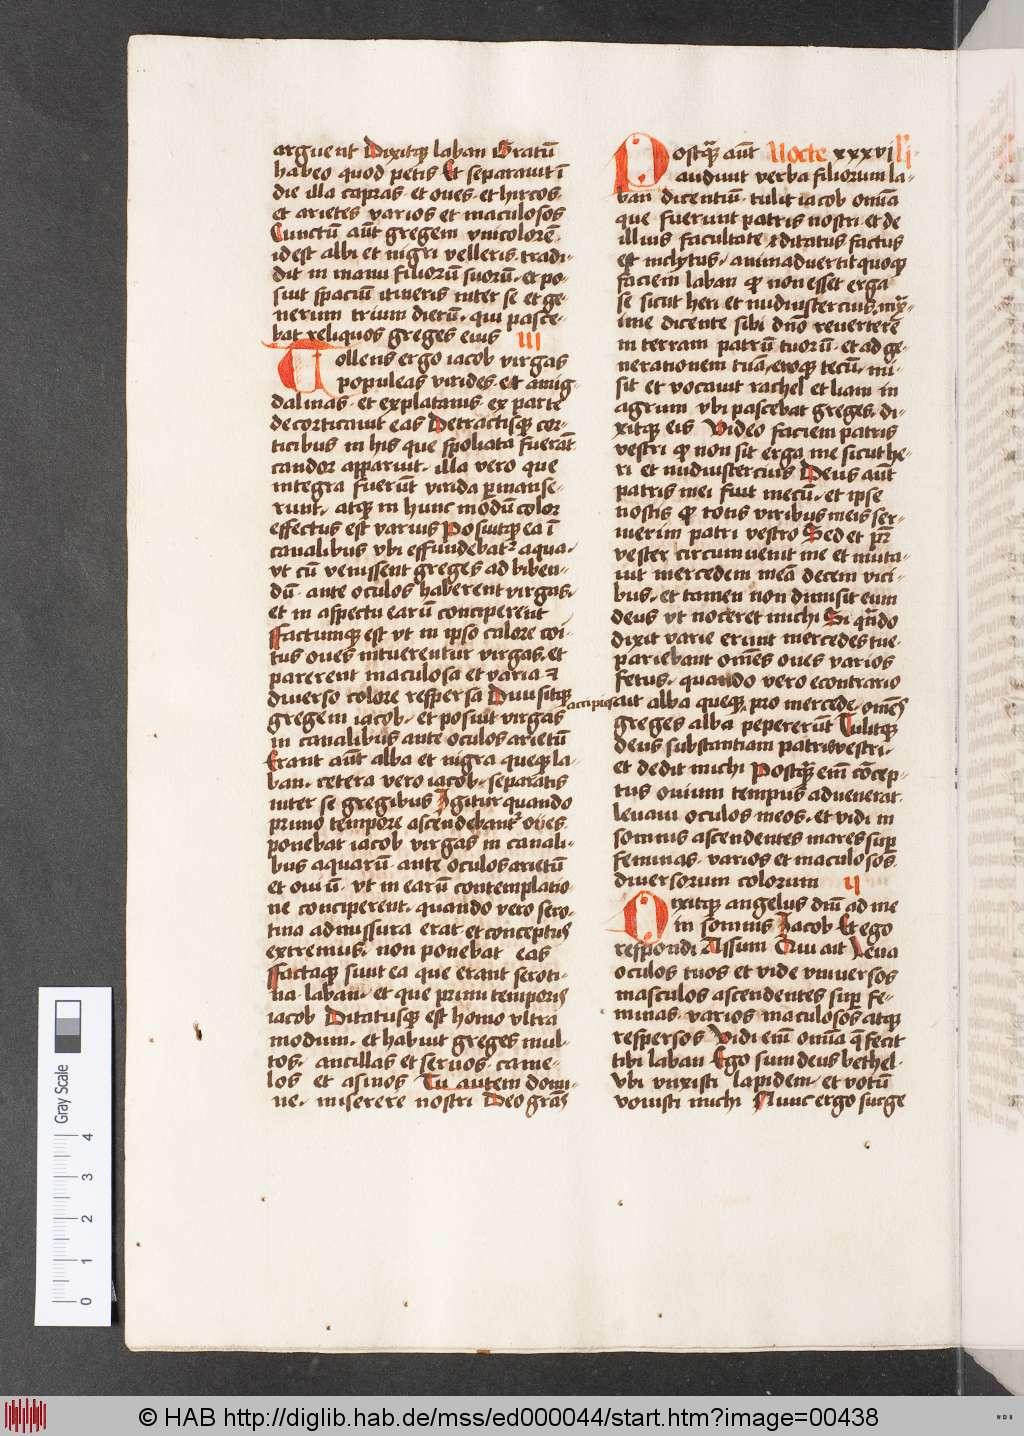 arguent Dixitque laban Gratū
habeo quod petis Et separauit ī
die illa capras et oues et hircos
et arietes varios et maculosos
Cunctū aūt gregem vnicolorē
id est albi et nigri velleris tradi-
dit in manu filiorū suorū et po-
suit spaciū itineris inter se et ge-
nerum trium dierū qui pasce-
bat reliquos greges eius III
Tollens ergo iacob virgas
populeas virides et amig-
dalinas et ex platanis ex parte
decorticauit eas Detractisque cor-
ticibus in his que spoliata fuerāt
candor apparuit illa vero que
integra fuerūt virida permanse-
runt atque in hunc modū color
effectus est varius Posuitque ea ī
canalibus vbi effundebatur aqua
vt cū venissent greges ad biben-
dū ante oculos haberent virgas
et in aspectu earū conciperent
ffactumque est vt in ipso calore coi-
tus oues intuerentur virgas et
parerent maculosa et varia et
diuerso colore respersa Diuisitque
gregem iacob et posuit virgas
in canalibus ante oculos arietū
Erant aūt alba et nigra queque la-
ban cetera vero iacob separatis
inter se gregibus Igitur quando
primo tempore ascendebantur oues
ponebat iacob virgas in canali-
bus aquarū ante oculos arietū
et ouiū vt in earū contemplatio-
ne conciperent quando vero sero-
tina admissura erat et conceptus
extremus non ponebat eas
ffactaque sunt ea que erant seroti-
na laban et que primi temporis
iacob Ditatusque est homo vltra
modum et habuit greges mul-
tos ancillas et seruos came-
los et asinos Tu autem domi-
ne miserere nostri Deo grās
Postquā aūt Nocte xxxvi
audiuit verba filiorum la-
ban dicentiū tulit iacob omīa
que fuerunt patris nostri et de
illius facultate ditatus factus
est inclytus animaduertit quoque
faciem laban quod non esset erga
se sicut heri et nudiustercius
ime dicente sibi dno reuertere
in terram patrū tuorū et ad ge-
nerationem tuā eroque tecū mi-
sit et vocauit rachel et liam in
agrum vbi pascebat greges di-
xitque eis Video faciem patris
vestri quod non sit erga me sicut he-
ri et nudiustercius Deus aūt
patris mei fuit mecū et ipse
nostis quod totis viribus meis ser-
uierim patri vestro Sed et pr̄
vester circumuenit me et muta-
uit mercedem meā decem vici-
bus et tamen non dimisit eum
deus vt noceret michi Si quādo
dixit varie erunt mercedes tue
pariebant omēs oues varios
fetus quando vero econtrario
accipiaeaut alba queque pro mercede omēs
greges alba pepererūt Tulitque
deus substantiam patris vestri
et dedit michi Postquā enī cōcep-
tus ouium tempus aduenerat
leuaui oculos meos et vidi in
somnis ascendentes mares super
feminas varios et maculosos
diuersorum colorum II
Dixitque angelus dnī ad me
in somnis Iacob Et ego
respondi Assum Qui ait Leua
oculos tuos et vide vniuersos
masculos ascendentes super fe-
minas varios maculosos atque
respersos Vidi enī omīa que fecit
tibi laban Ego sum deus bethel
vbi vnxisti lapidem et votū
vouisti michi Nunc ergo surge
Gray Scale
0 1 2 3 4
© HAB http://diglib.hab.de/mss/ed000044/start.htm?image=00438